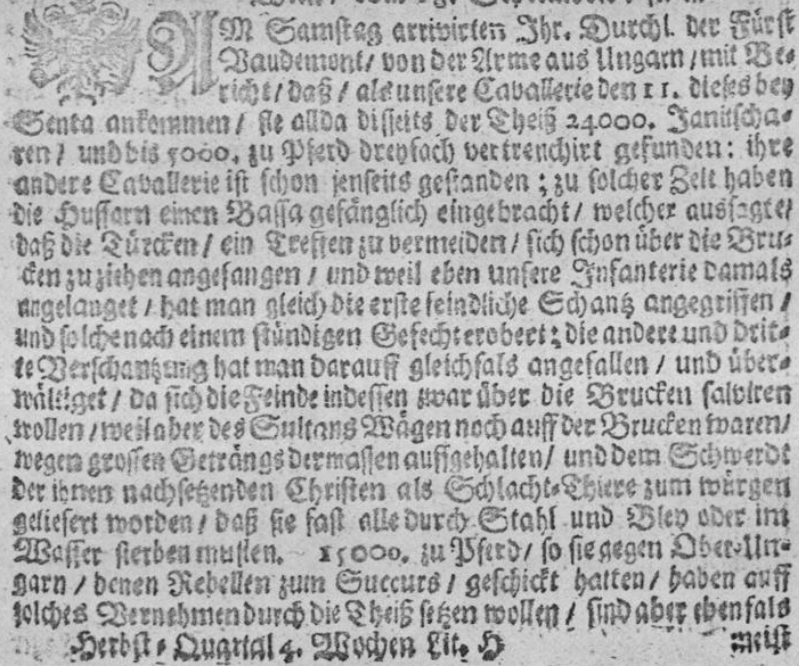 AM Samstag arrivirten Ihr. Durchl. der Fürst
Vaudemont / von der Arme aus Ungarn / mit Be-
richt / daß / als unsere Cavallerie den 11. dieses bey
Senta ankommen / sie allda disseits der Theiß 24000. Janitscha-
ren / und bis 5000. zu Pferd dreyfach vertrenchirt gefunden: ihre
andere Cavallerie ist schon jenseits gestanden ; zu solcher Zeit haben
die Hussarn einen Bassa gefänglich eingebracht / welcher aussagte /
daß die Türcken / ein Treffen zu vermeiden / sich schon über die Bru-
cken zu ziehen angefangen / und weil eben unsere Infanterie damals
angelanget / hat man gleich die erste feindliche Schantz angegriffen /
und solche nach einem stündigen Gefecht erobert ; die andere und drit-
te Verschantzung hat man darauff gleichfals angefallen / und über-
wältiget / da sich die Feinde indessen zwar über die Brucken salviren
wollen / weil aber des Sultans Wägen noch auff der Brucken waren /
wegen grossen Geträngs dermassen auffgehalten / und dem Schwerdt
der ihnen nachsetzenden Christen als Schlacht-Thiere zum würgen
geliefert worden / daß sie fast alle durch Stahl und Bley oder im
Wasser sterben musten. 15000. zu Pferd / so sie gegen Ober-Un-
garn / denen Rebellen zum Succurs / geschickt hatten / haben auff
solches Vernehmen durch die Theiß setzen wollen / sind aber ebenfals
Herbst-Quartal 4. Wochen Lit. H meist